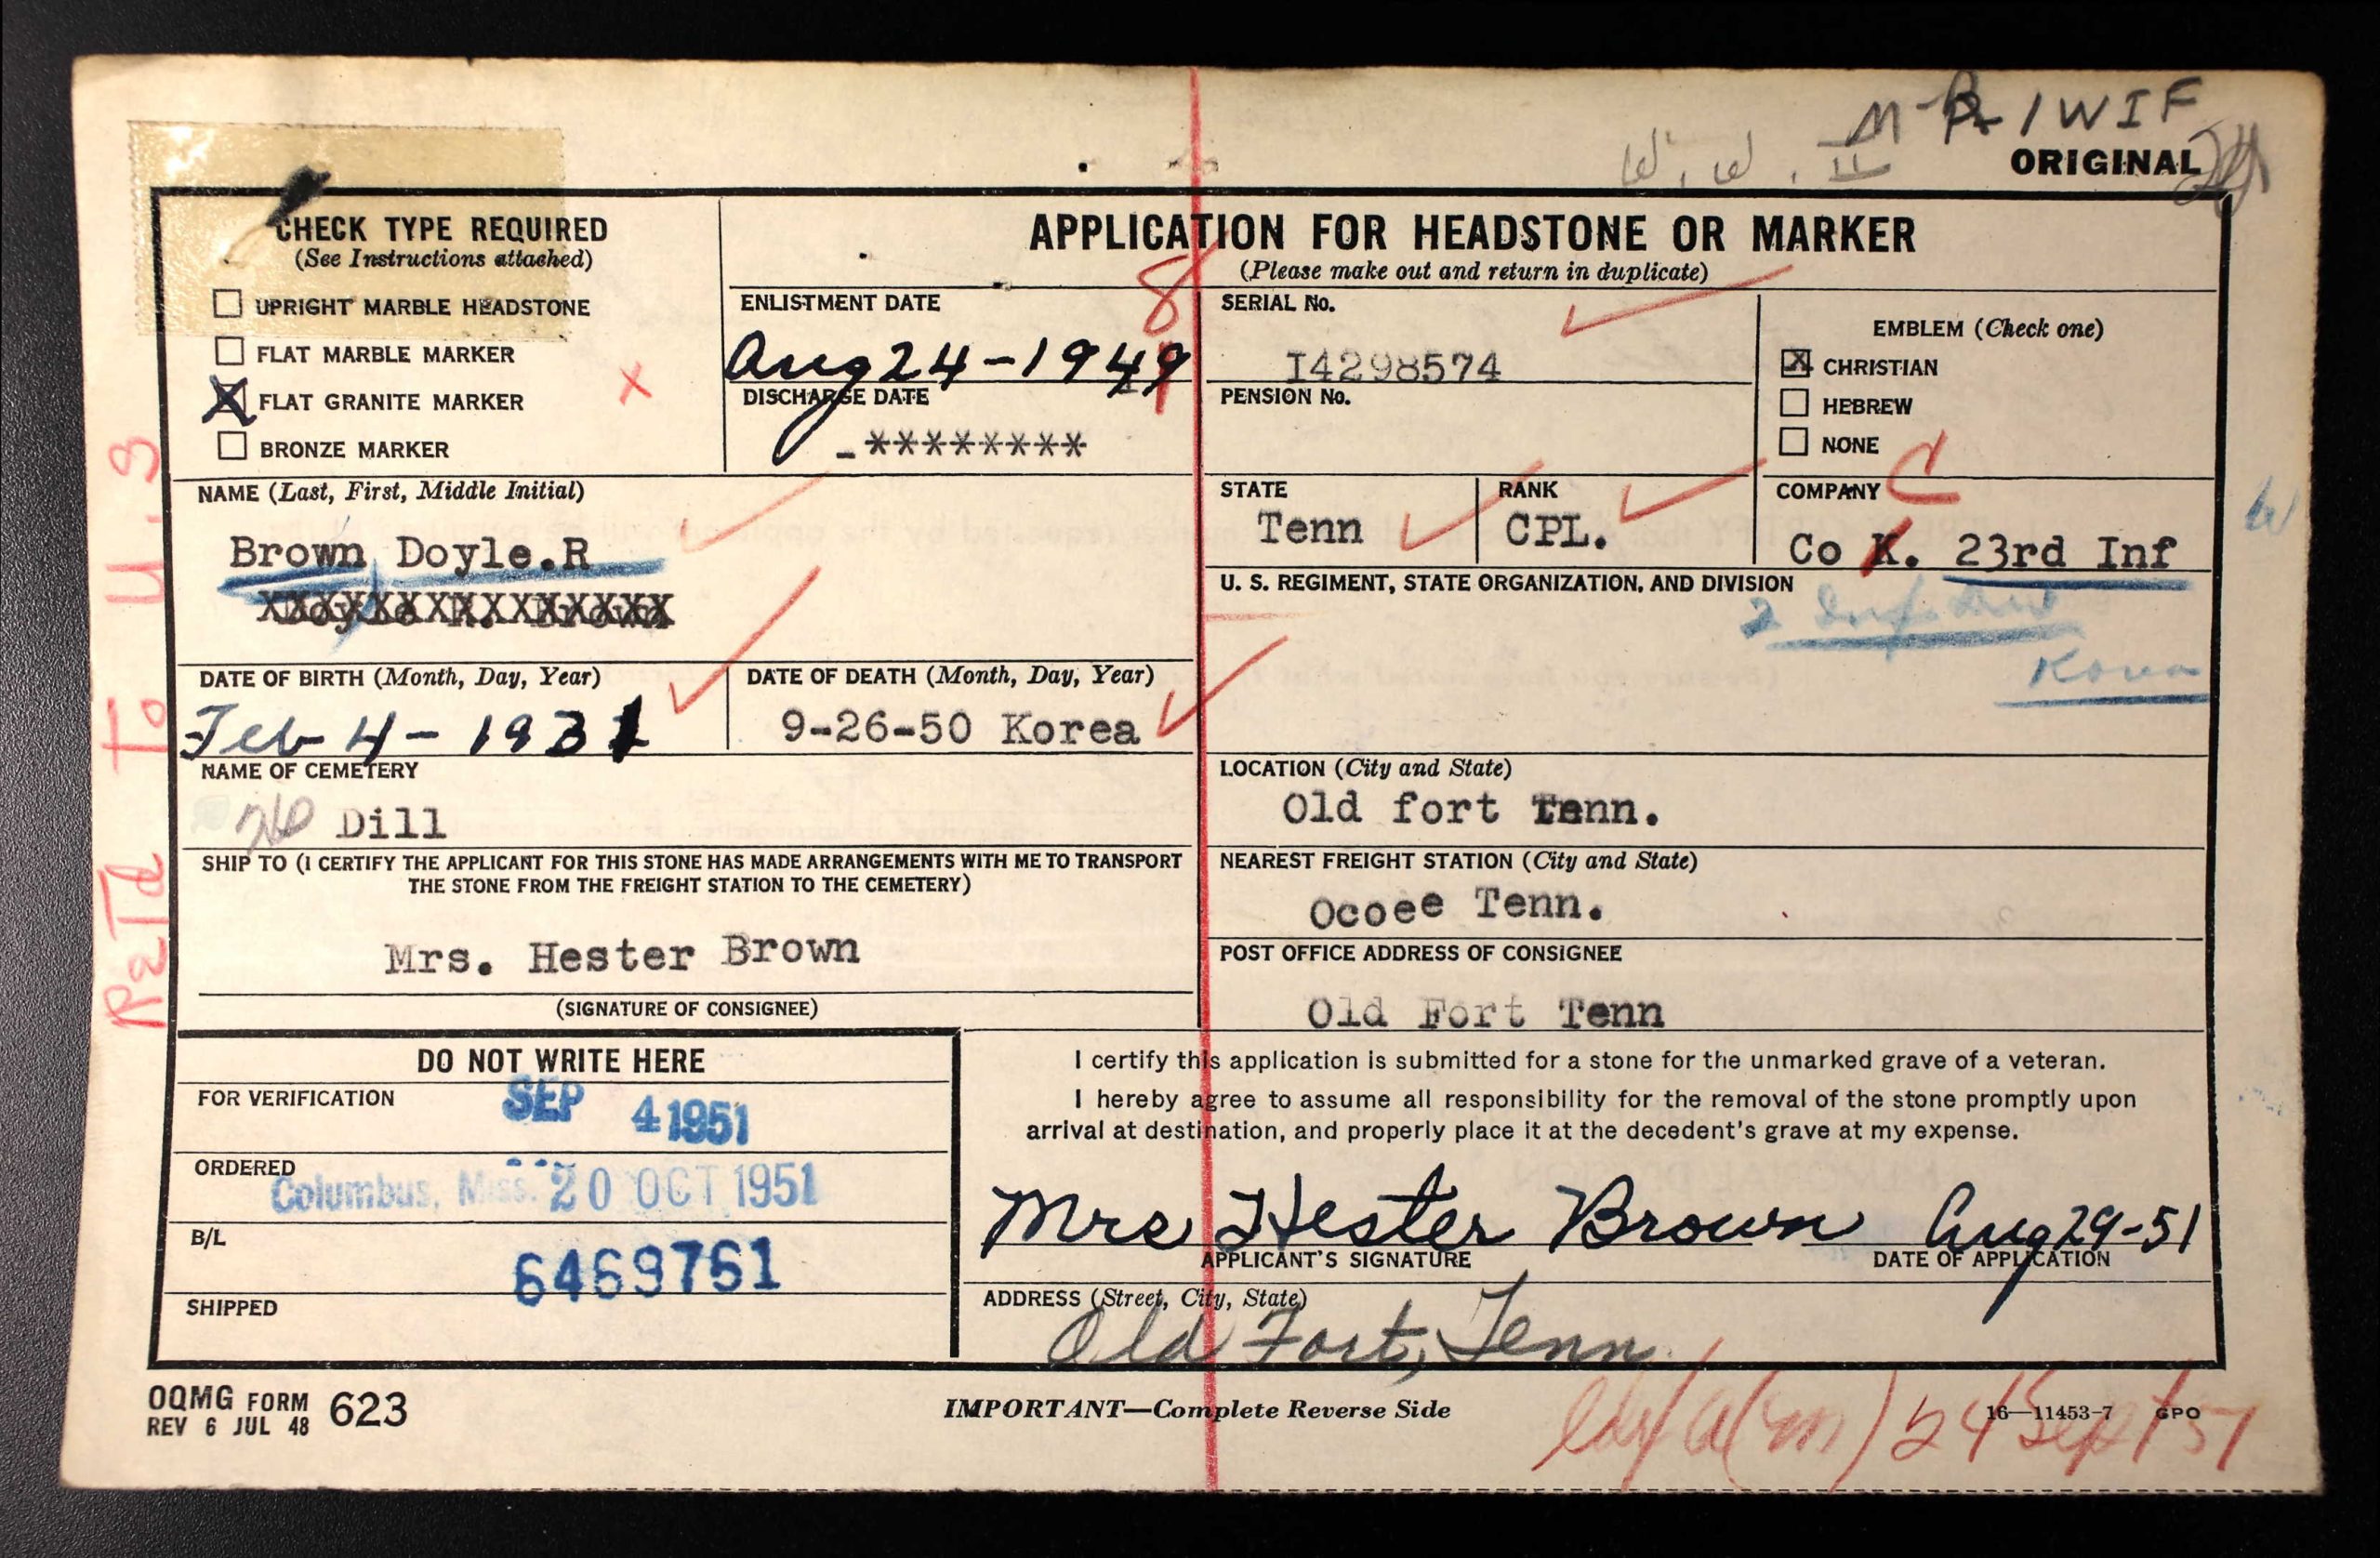 W. W. II
ORIGINAL
CHECK TYPE REQUIRED
(See Instructions attached)
UPRIGHT MARBLE HEADSTONE
FLAT MARBLE MARKER
X FLAT GRANITE MARKER
BRONZE MARKER
X
APPLICATION FOR HEADSTONE OR MARKER
(Please make out and return in duplicate)
ENLISTMENT DATE
8
Aug 24-1949
DISCHARGE DATE
-********
SERIAL No.
I4298574
PENSION No.
EMBLEM (Check one)
X CHRISTIAN
HEBREW
NONE
NAME (Last, First, Middle Initial)
Brown Doyle.R
STATE
Tenn
RANK
CPL.
COMPANY C
Co K. 23rd Inf
U. S. REGIMENT, STATE ORGANIZATION, AND DIVISION
2 Inf Div
Korea
DATE OF BIRTH (Month, Day, Year)
Feb 4-1931
DATE OF DEATH (Month, Day, Year)
9-26-50 Korea
NAME OF CEMETERY
Dill
LOCATION (City and State)
Old fort Tenn.
SHIP TO (I CERTIFY THE APPLICANT FOR THIS STONE HAS MADE ARRANGEMENTS WITH ME TO TRANSPORT
THE STONE FROM THE FREIGHT STATION TO THE CEMETERY)
Mrs. Hester Brown
(SIGNATURE OF CONSIGNEE)
NEAREST FREIGHT STATION (City and State)
Ocoee Tenn.
POST OFFICE ADDRESS OF CONSIGNEE
Old Fort Tenn
RETd To U.S
DO NOT WRITE HERE
FOR VERIFICATION
SEP 4 1951
ORDERED
Columbus, Miss. 20 OCT 1951
B/L
6469761
SHIPPED
I certify this application is submitted for a stone for the unmarked grave of a veteran.
I hereby agree to assume all responsibility for the removal of the stone promptly upon
arrival at destination, and properly place it at the decedent's grave at my expense.
Mrs Hester Brown Aug 29-51
APPLICANT'S SIGNATURE
DATE OF APPLICATION
ADDRESS (Street, City, State)
Old Fort, Tenn.
OQMG FORM 623
REV 6 JUL 48
IMPORTANT—Complete Reverse Side
16—11453-7 GPO
24 Sept 51